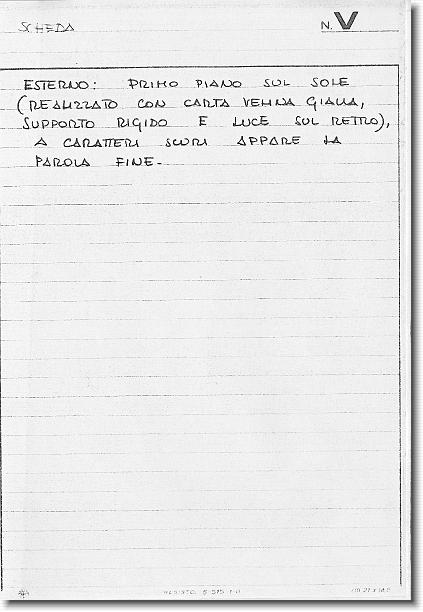 SCHEDA
N. V
ESTERNO: PRIMO PIANO SUL SOLE
(REALIZZATO CON CARTA VELINA GIALLA,
SUPPORTO RIGIDO E LUCE SUL RETRO),
A CARATTERI SCURI APPARE LA
PAROLA FINE.